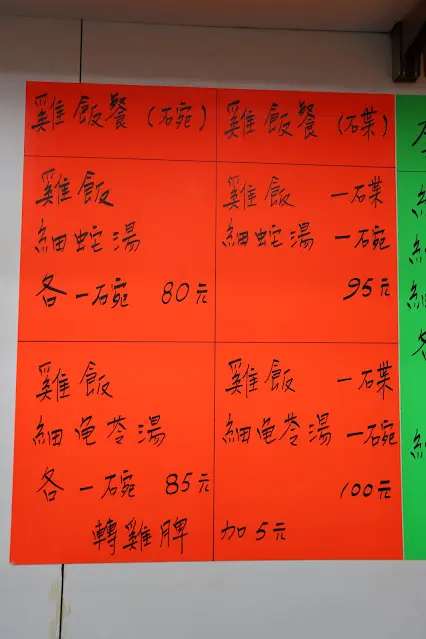 雞飯餐（碗）
雞飯
細蛇湯
各一碗 80元
雞飯餐（碟）
雞飯 一碟
細蛇湯 一碗
95元
雞飯
細龟苓湯
各一碗 85元
雞飯 一碟
細龟苓湯 一碗
100元
轉雞脾 加5元